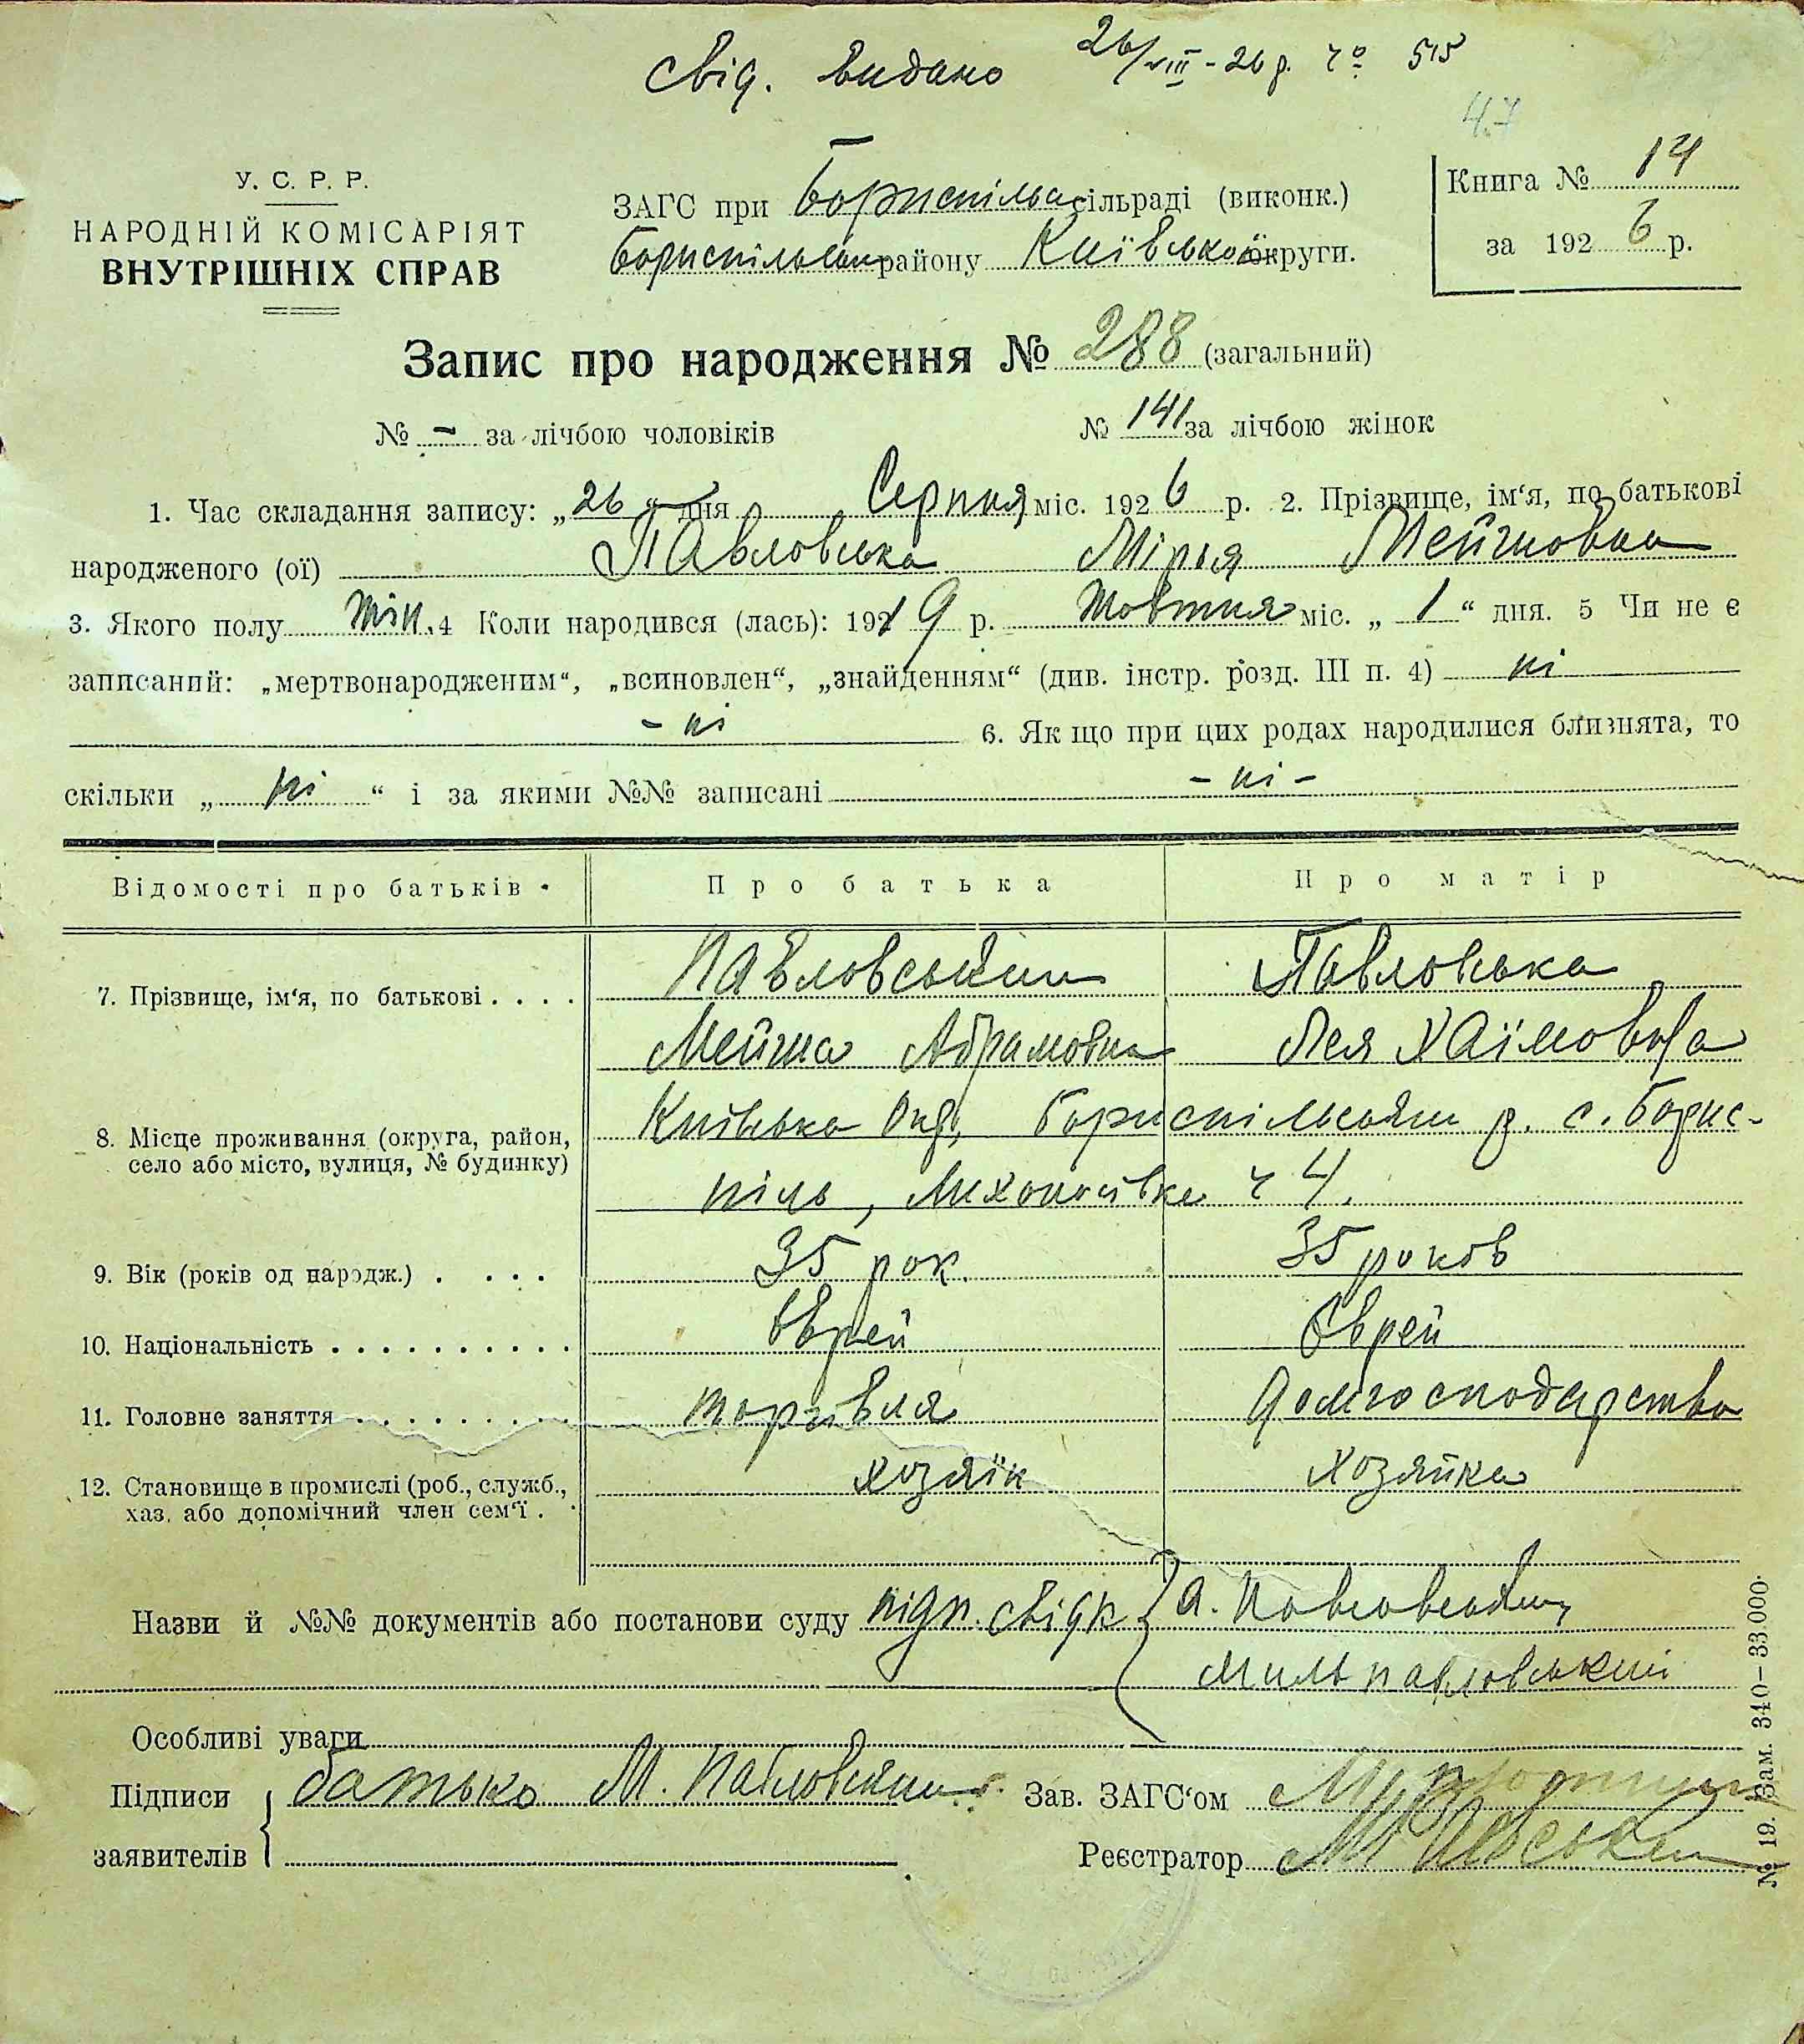 свід. видано 26/VIII - 26 р. чо 515
47
У. С. Р. Р.
НАРОДНІЙ КОМІСАРІЯТ
ВНУТРІШНІХ СПРАВ
ЗАГС при Бориспільськ сільраді (виконк.)
Бориспільськ району Київської округи.
Книга № 14
за 192 6 р.
Запис про народження № 288 (загальний)
№ - за лічбою чоловіків № 141 за лічбою жінок
1. Час складання запису: „26“ дня Серпня міс. 192 6 р. 2. Прізвище, ім‘я, по батькові
народженого (ої) Павловська Мірья Мейшовна
3. Якого полу жін. 4 Коли народився (лась): 191 9 р. Жовтня міс. „ 1 “ дня. 5 Чи не є
записаний: „мертвонародженим“, „всиновлен“, „знайденням“ (див. інстр. розд. III п. 4) ні
- ні 6. Як що при цих родах народилися близнята, то
скільки „ ні “ і за якими №№ записані - ні -
Відомості про батьків Про батька Про матір
7. Прізвище, ім‘я, по батькові . . . . Павловський Павловська
Мейша Абрамович Лея Хаїмовна
8. Місце проживання (округа, район, Київська Окр, Бориспільський р. с. Борис-
село або місто, вулиця, № будинку)
піль, ч 4.
9. Вік (років од народж.) . . . . 35 рок. 35 роков
10. Національність . . . . . . . . . . Єврей Єврей
11. Головне заняття . . . . . . . . . торгівля Домгосподарство
12. Становище в промислі (роб., служб., хозяїн хозяйка
хаз. або допомічний член сем‘ї .
Назви й №№ документів або постанови суду підп. свідк { А. Павловський
Павловський
Особливі уваги
Підписи { батько М. Павловський Зав. ЗАГС‘ом
заявителів Реєстратор
№ 19. Зам. 340–33.000.